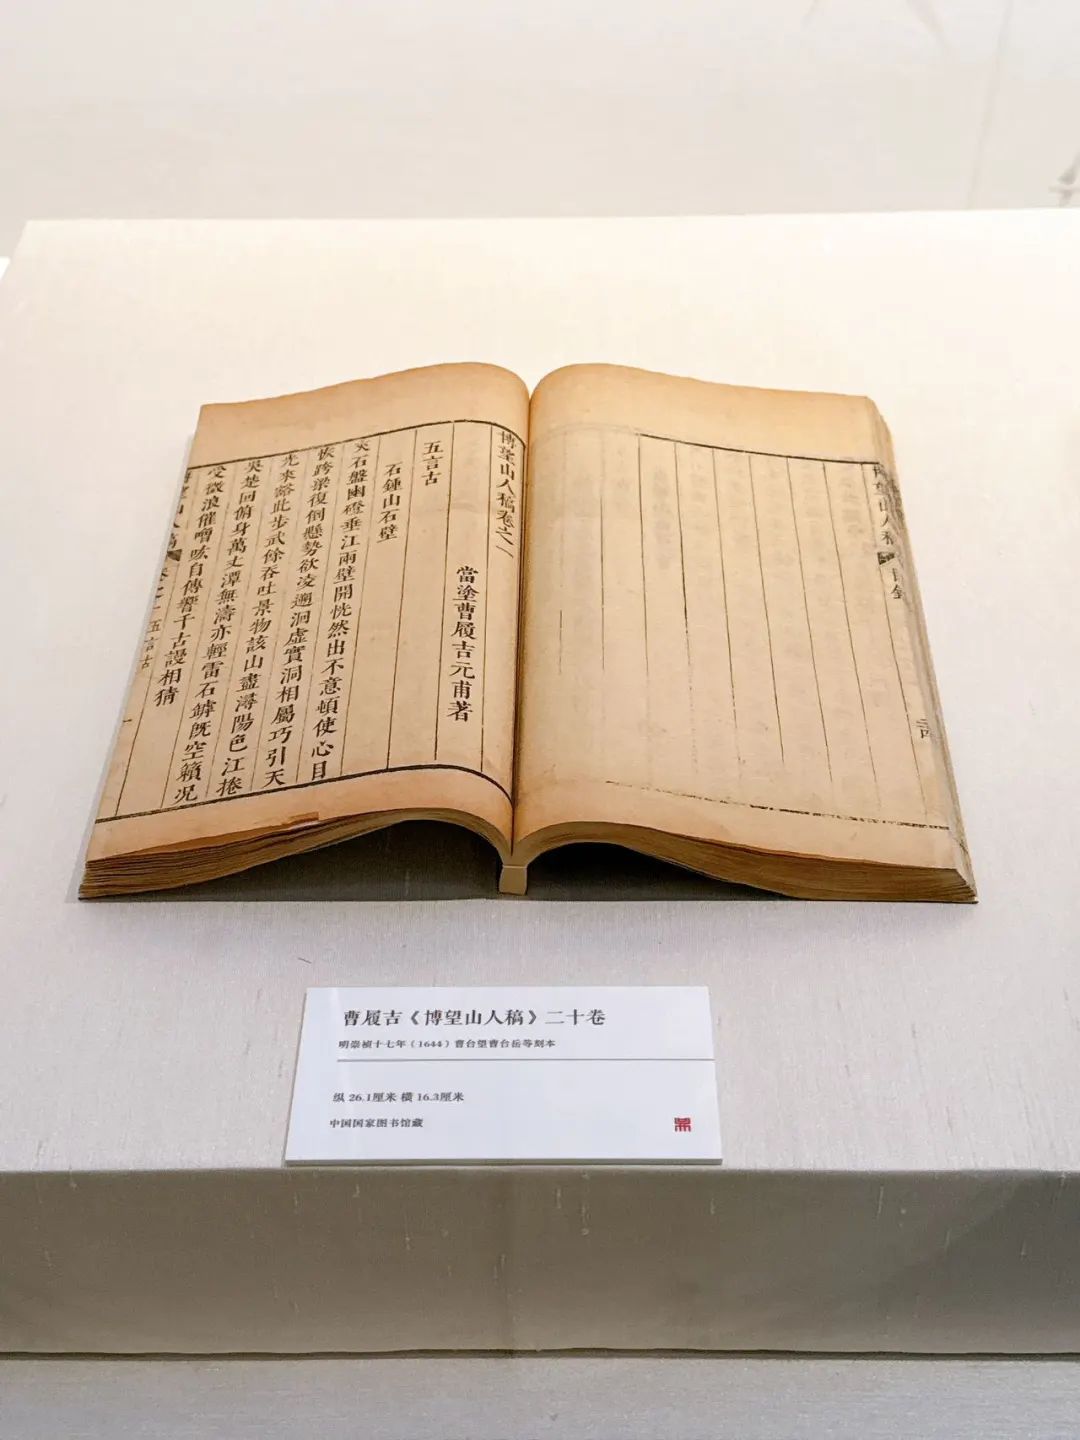 博望山人稿卷之一
當塗曹履吉元甫著
五言古
石鍾山石壁
夾石盤幽磴垂江兩壁開恍然出不意頓使心目
恢跨梁復倒懸勢欲凌遡洄虛實洞相屬巧引天
光來谽此步武餘吞吐景物該山盡潯陽色江捲
吳楚回俯身萬丈潭無濤亦輕雷石罅既空籟況
受微浪催噌吰自傳響千古謾相猜
博望山人稿 卷之一 五言古 一
博望山人稿 目錄
曹履吉《博望山人稿》二十卷
明崇祯十七年（1644）曹台望曹台岳等刻本
纵 26.1厘米 横 16.3厘米
中国国家图书馆藏